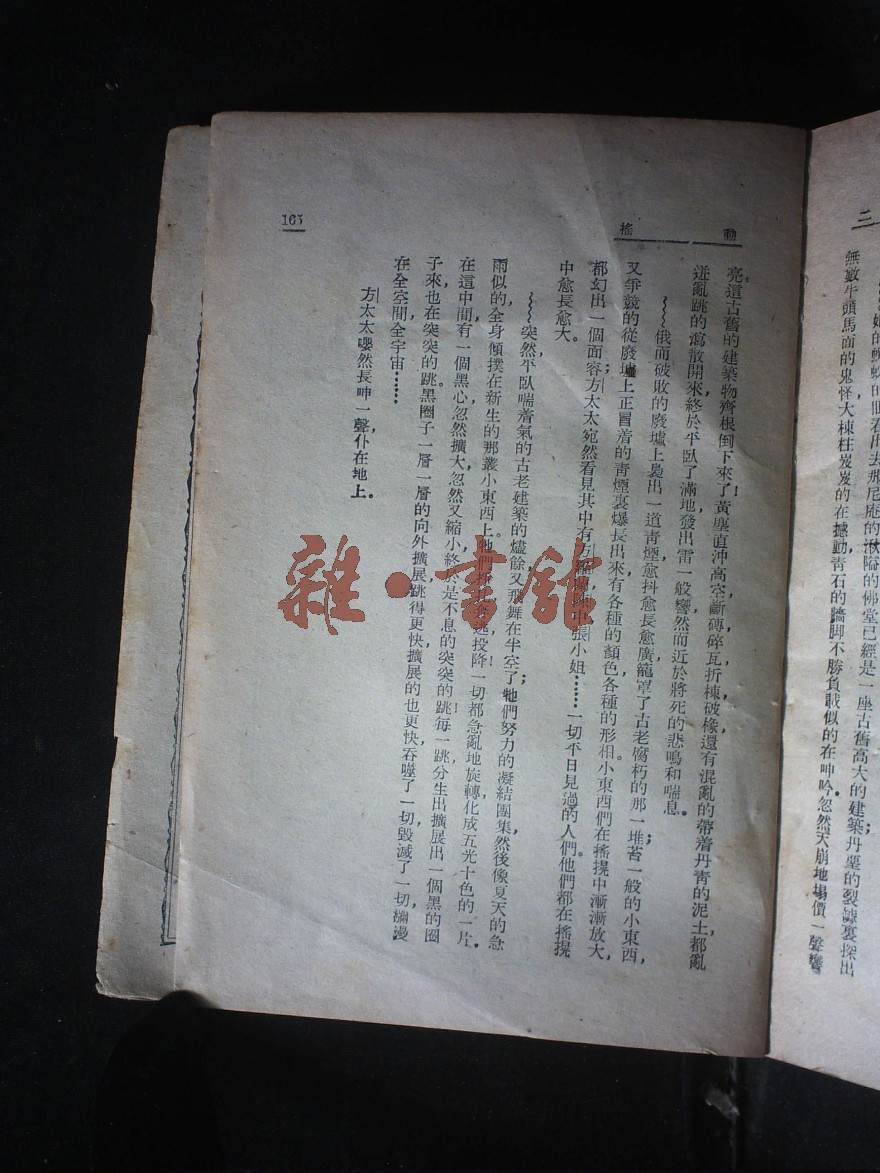 三
無數牛頭馬面的鬼怪大棟柱岌岌的在撼動青石的牆腳不勝負載似的在呻吟。忽然天崩地塌價一聲響
搖動
亮,這古舊的建築物齊根倒下來了!黃塵直沖高空,斷磚碎瓦,折棟破椽,還有混亂的帶着丹青的泥土,都亂
迸亂跳的瀉散開來,終於平臥了滿地,發出雷一般響,然而近於將死的悲鳴和喘息。
~~~~俄而破敗的廢墟上裊出一道青煙,愈抖愈長,愈廣,籠罩了古老腐朽的那一堆;苔一般的小東西,
又爭競的從廢墟上正冒着的青煙裏爆長出來,有各種的顏色,各種的形相。小東西們在搖提中漸漸放大,
都幻出一個面容;方太太宛然看見其中有方羅蘭,陳中,張小姐……一切平日見過的人們。他們都在搖提
中愈長愈大。
~~~~突然,平臥喘着氣的古老建築的燼餘,又飛舞在半空了;牠們努力的凝結團集,然後像夏天的急
雨似的,全身傾撲在新生的那叢小東西上。他們奔逃,投降,一切都急亂地旋轉,化成五光十色的一片。
在這中間,有一個黑心,忽然擴大,忽然又縮小,終於是不息的突突的跳!每一跳,分生出擴展出一個黑的圈
子來,也在突突的跳。黑圈子一層一層的向外擴展,跳得更快,擴展的也更快,吞噬了一切,毀滅了一切,瀰漫
在全空間,全宇宙……
方太太嚶然長呻一聲,仆在地上。
165
雜·書館